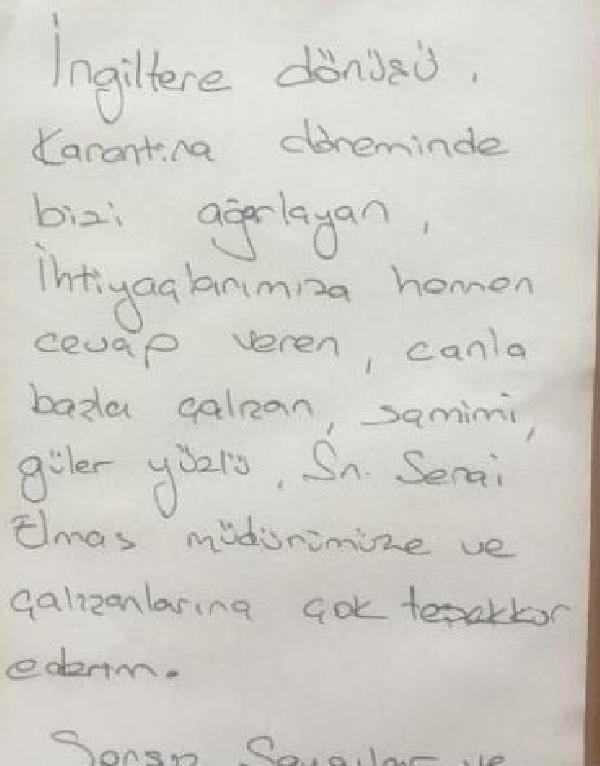 İngiltere dönüşü,
Karantina döneminde
bizi ağırlayan,
İhtiyaçlarımıza hemen
cevap veren, canla
başla çalışan, samimi,
güler yüzlü, Sn. Senai
Elmas müdürümüze ve
çalışanlarına çok teşekkür
ederim.
Saygılar ve